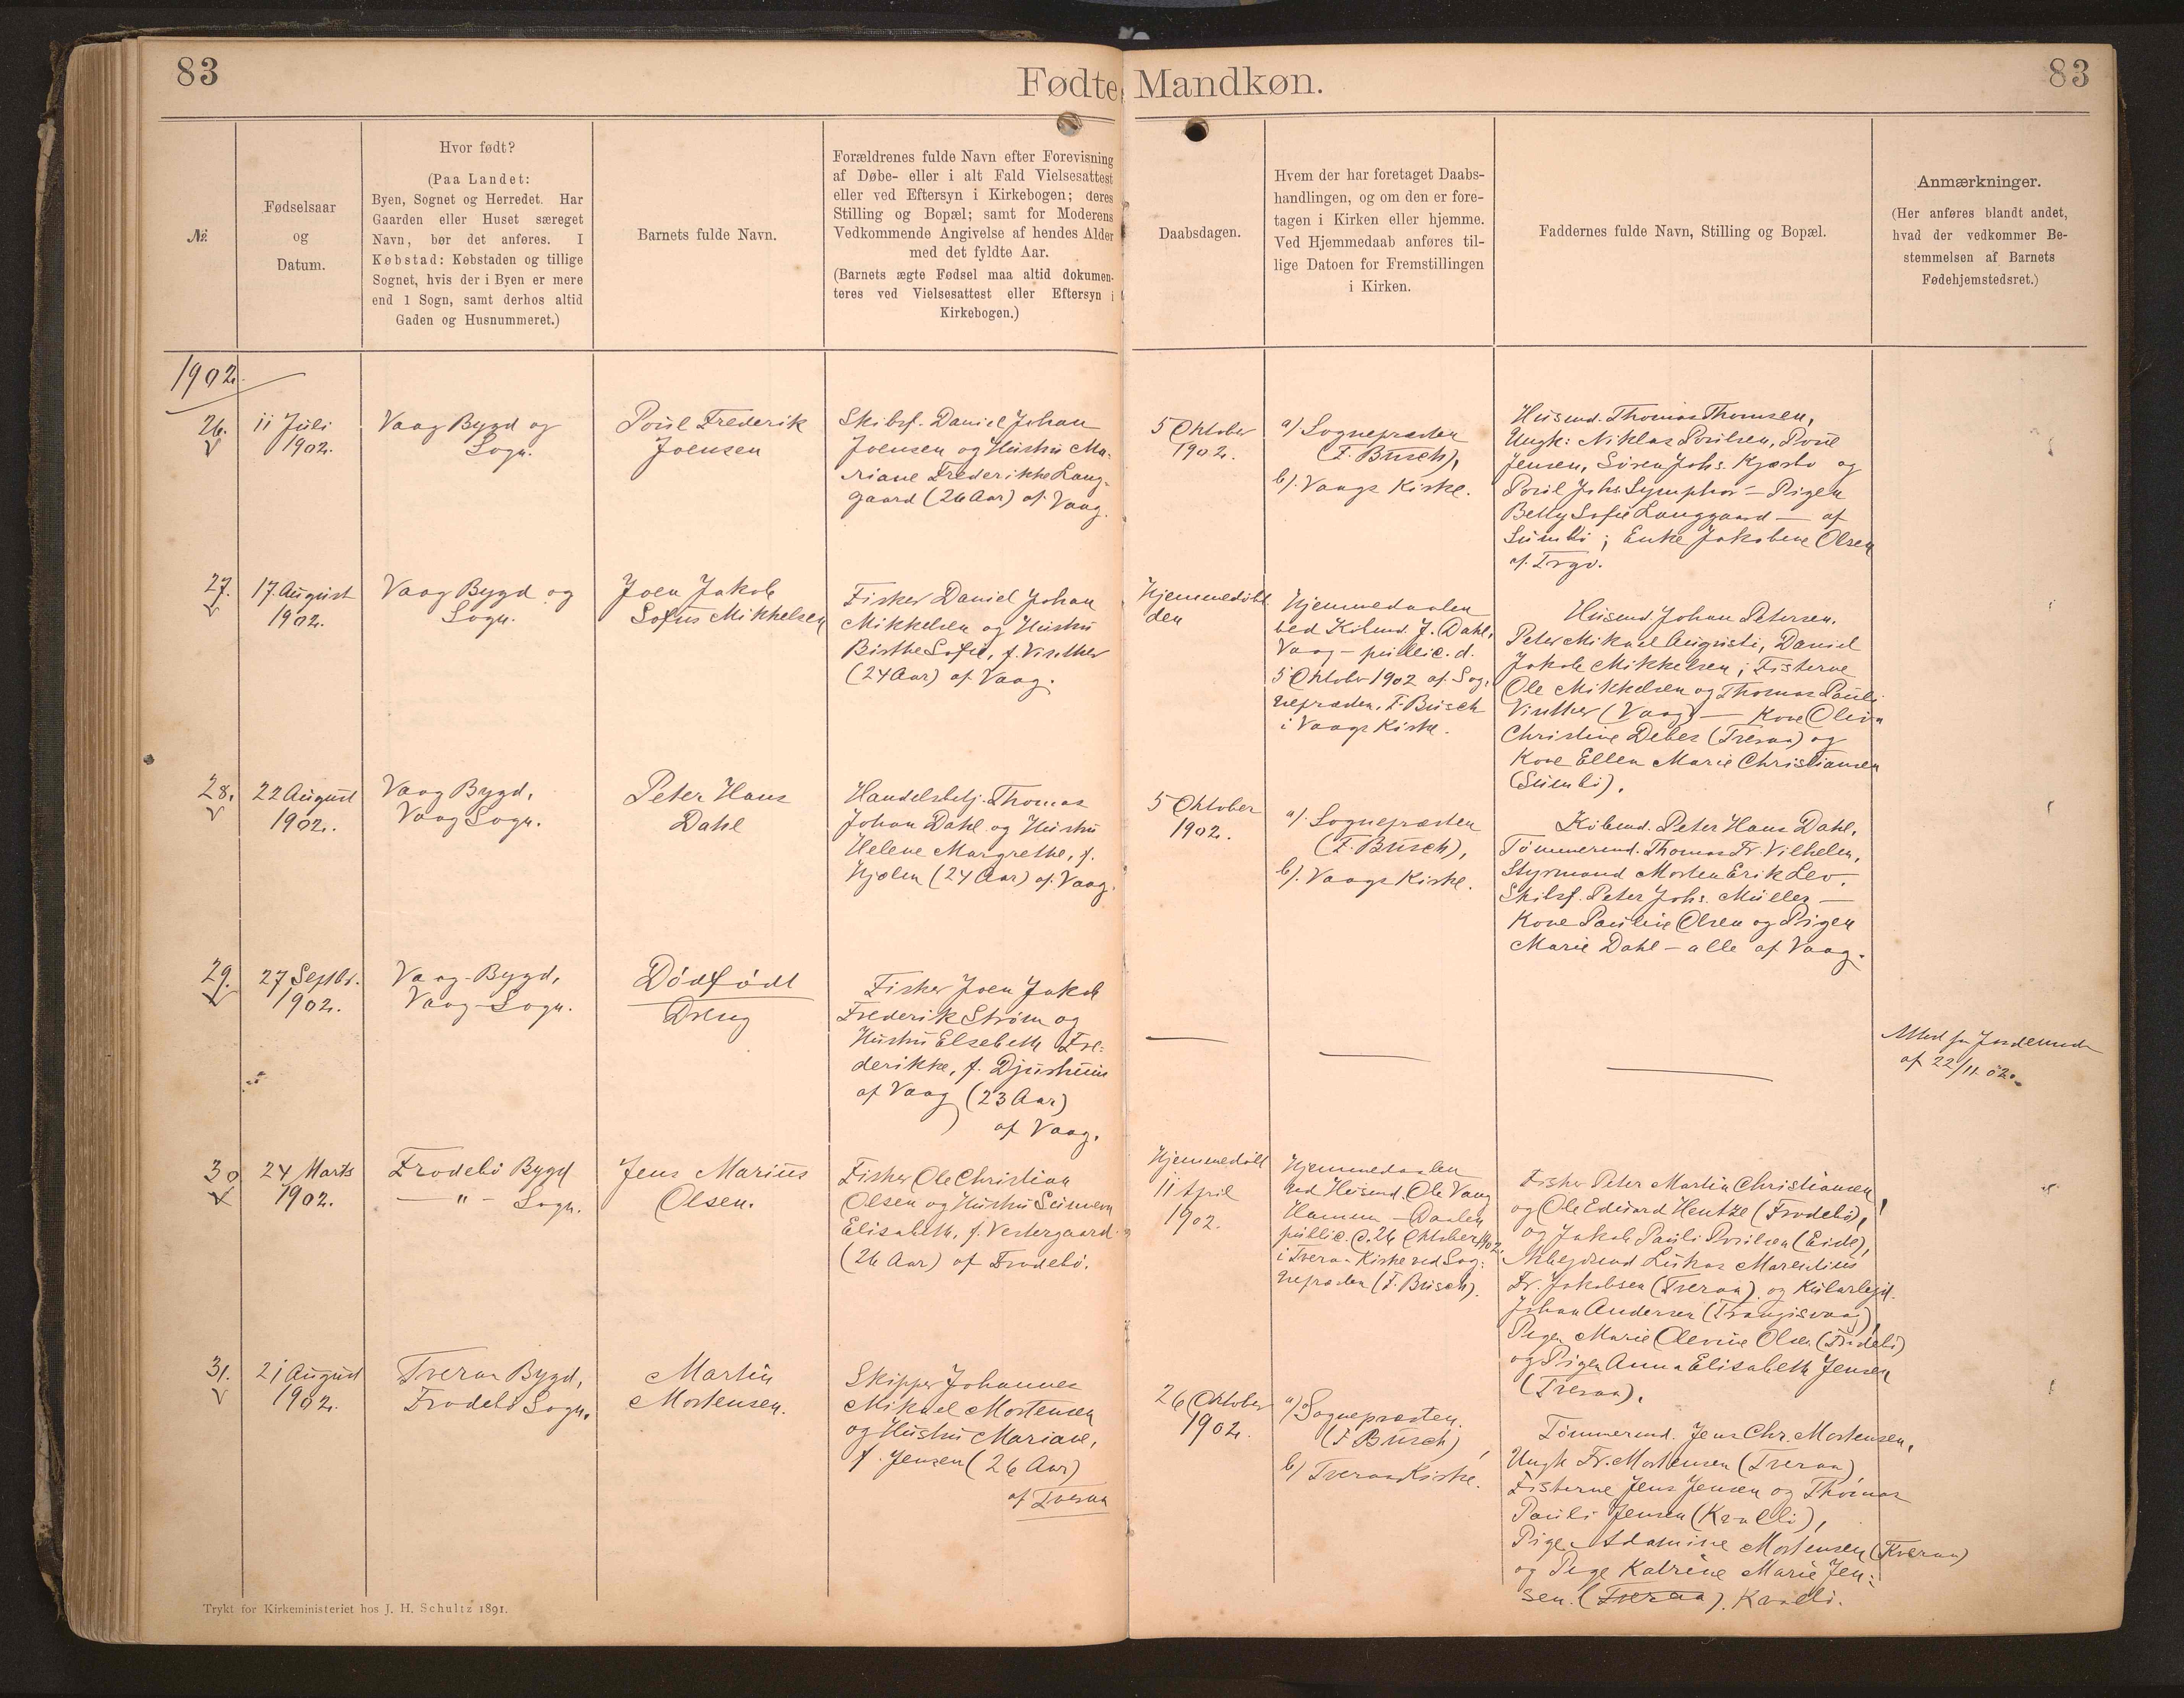 83
Fødte Mandkøn.
83
№
Fødselsaar
og
Datum.
Hvor født?
(Paa Landet:
Byen, Sognet og Herredet. Har
Gaarden eller Huset særeget
Navn, bør det anføres. I
Købstad: Købstaden og tillige
Sognet, hvis der i Byen er mere
end 1 Sogn, samt derhos altid
Gaden og Husnummeret.)
Barnets fulde Navn.
Forældrenes fulde Navn efter Forevisning
af Døbe- eller i alt Fald Vielsesattest
eller ved Eftersyn i Kirkebogen; deres
Stilling og Bopæl; samt for Moderens
Vedkommende Angivelse af hendes Alder
med det fyldte Aar.
(Barnets ægte Fødsel maa altid dokumen-
teres ved Vielsesattest eller Eftersyn i
Kirkebogen.)
Daabsdagen.
Hvem der har foretaget Daabs-
handlingen, og om den er fore-
tagen i Kirken eller hjemme.
Ved Hjemmedaab anføres til-
lige Datoen for Fremstillingen
i Kirken.
Faddernes fulde Navn, Stilling og Bopæl.
Anmærkninger.
(Her anføres blandt andet,
hvad der vedkommer Be-
stemmelsen af Barnets
Fødehjemstedsret.)
1902.
26.
11 Juli
1902.
Vaag Bygd og
Sogn.
Poul Frederik
Joensen
Skibsf. Daniel Johan
Joensen og Hustru Ma-
riane Frederikke Lang-
gaard (26 Aar) af Vaag.
5 Oktober
1902.
a/ Sognepræsten
(F. Busch),
b/. Vaags Kirke.
Husmd. Thomas Thomsen,
Ungk: Niklas Poulsen, Poul
Jensen, Søren Johs. Kjærbo og
Poul Johs Symphor — Pigen
Betty Sofie Langgaard — af
Sumbö; Enke Jakobine Olsen
af
27.
17. August
1902.
Vaag Bygd og
Sogn.
Joen Jakob
Sofus Mikkelsen
Fisker Daniel Johan
Mikkelsen og Hustru
Birthe Sofie, f. Vinther
(24 Aar) af Vaag.
Hjemmedøbt
den
Hjemmedaaben
ved Købmd. J. Dahl,
Vaag — public. d.
5 Oktober 1902 af Sog-
nepræsten, F. Busch
i Vaags Kirke.
Husmd. Johan Petersen,
Peter Mikael Augusti, Daniel
Jakob Mikkelsen; Fiskerne
Ole Mikkelsen og Thomas Pauli
Vinther (Vaag) — Kone Oliva
Christine Debes (Tveraa) og
Kone Ellen Marie Christiansen
(Sumbö).
28.
22 August
1902.
Vaag Bygd,
Vaag Sogn.
Peter Hans
Dahl
Handelsbetj. Thomas
Johan Dahl og Hustru
Helene Margrethe, f.
Hjelm (24 Aar) af Vaag.
5 Oktober
1902.
a/. Sognepræsten
(F. Busch),
b/. Vaags Kirke.
Købmd. Peter Hans Dahl,
Tömmermd. Thomas Fr. Vilhelm,
Styrmand Morten Erik Lev.
Skibsf. Peter Johs. Müller —
Kone Pauline Olsen og Pigen
Marie Dahl — alle af Vaag.
29.
27 Septbr.
1902.
Vaag-Bygd,
Vaag-Sogn.
Dödfödt
Dreng
Fisker Joen Jakob
Frederik Strøm og
Hustru Elsebeth Fre-
derikke, f. Djurhuus
af Vaag (23 Aar)
af Vaag.
Attest fra Jordemoder
af 22/11 02.
30
24 Marts
1902.
Frodebö Bygd
— " — Sogn.
Jens Marius
Olsen.
Fisker Ole Christian
Olsen og Hustru Sunneva
Elisabeth, f. Vestergaard
(26 Aar) af Frodebö.
Hjemmedöbt
11 April
1902.
Hjemmedaaben
ved Husmd. Ole Vang
Hamm — Daaben
public. d. 26 Oktober 1902
i Tveraa-Kirke ved Sog-
nepræsten (F. Busch).
Fisker Peter Martin Christiansen
og Ole Edvard Hentze (Frodebö),
og Jakob Pauli Poulsen (Eide),
Arbejdsmd Lukas Marentius
Fr. Jakobsen (Tveraa) og Kularbejd.
Johan Andersen (Trangisvaag),
Pigen Marie Olevine Olsen (Frodebö)
og Pigen Anna Elisabeth Jensen
(Tveraa).
31.
21 August
1902.
Tveraa Bygd,
Frodebö Sogn.
Martin
Mortensen.
Skipper Johannes
Mikael Mortensen
og Hustru Mariane,
f. Jensen (26 Aar)
af Tveraa
26 Oktober
1902.
a/ Sognepræsten
(F. Busch),
b/ Tveraa Kirke.
Tömmermd. Jens Chr. Mortensen,
Ungk Fr. Mortensen (Tveraa)
Fiskerne Jens Jensen og Thomas
Pauli Jensen (Kvalbö),
Pige Adamine Mortensen (Tveraa)
og Pige Katrine Marie Jen-
sen. (Tveraa). Kvalbö.
Trykt for Kirkeministeriet hos J. H. Schultz 1891.